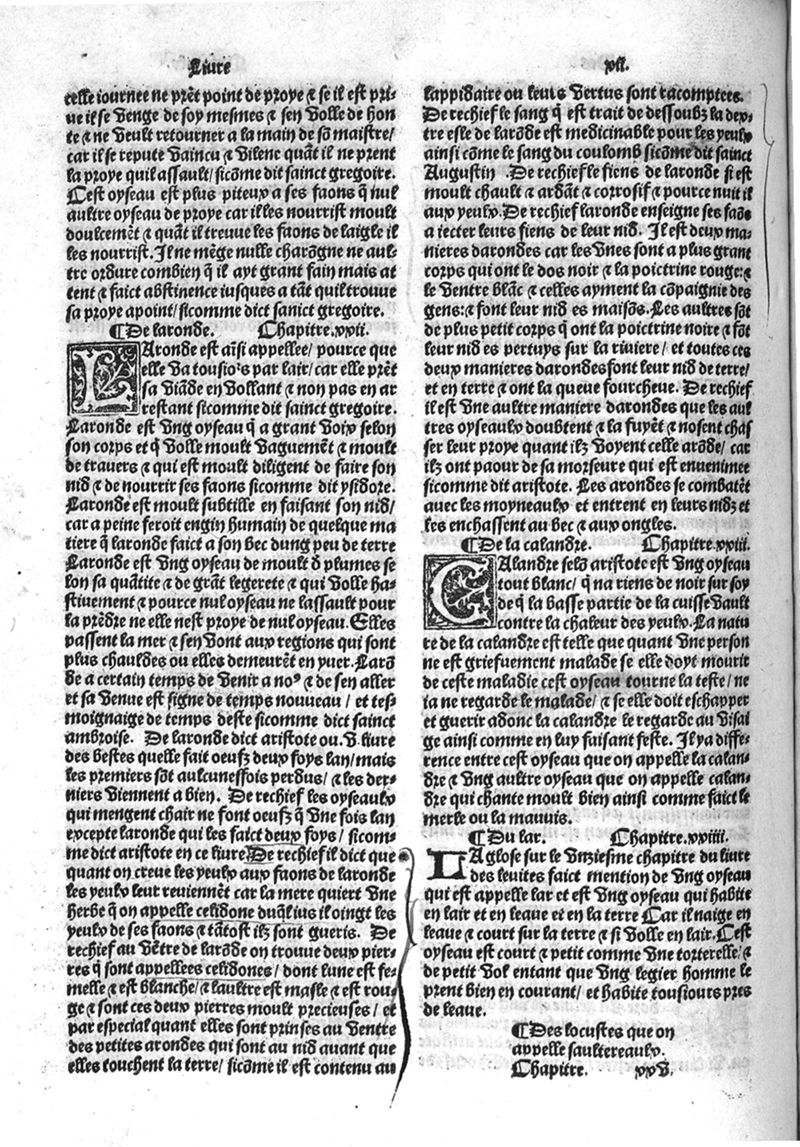 Liure
xii.
celle iournee ne prēt point de proye & se il est pri-
ue il se venge de soy mesmes & sen volle de hon
te & ne veult retourner a la main de sō maistre/
car il se repute vaincu & vilene quāt il ne prent
la proye quil assault/ sicōme dit sainct gregoire.
Cest oyseau est plus piteux a ses faons q̄ nul
aultre oyseau de proye car il les nourrist moult
doulcemēt & quāt il treuue les faons de laigle il
les nourrist. Il ne mēge nulle charōgne ne aul-
tre ordure combien q̄ il ayt grant fain mais at
tent & faict abstinence iusques a tāt quil trouue
sa proye apoint/ sicomme dict sanict gregoire.
¶De laronde. Chapitre.xxii.
LAronde est aīsi appellee/ pource que
elle va tousio's par lair/ car elle prēt
sa viāde en vollant & non pas en ar
restant sicomme dit sainct gregoire.
Laronde est vng oyseau q̄ a grant voix selon
son corps et q̄ volle moult vaguemēt & moult
de trauers & qui est moult diligent de faire son
nid & de nourrir ses faons sicomme dit ysidore.
Laronde est moult subtille en faisant son nid/
car a peine feroit engin humain de quelque ma
tiere q̄ laronde faict a son bec dung peu de terre
Laronde est vng oyseau de moult d̄ plumes se
lon sa quātite & de grāt legerete & qui volle ha-
stiuement & pource nul oyseau ne lassault pour
la prēdre ne elle nest proye de nul oyseau. Elles
passent la mer & sen vont aux regions qui sont
plus chauldes ou elles demeurēt en yuer. Larō
de a certain temps de venir a no' & de sen aller
et sa venue est signe de temps nouueau/ et tes-
moignaige de temps deste sicomme dict sainct
ambroise. De laronde dict aristote ou.v.liure
des bestes quelle fait oeufz deux foys lan/ mais
les premiers sōt aulcuneffois perdus/ & les der-
niers viennent a bien. De rechief les oyseaulx
qui mengent chair ne font oeufz q̄ vne fois lan
excepte laronde qui les faict deux foys/ sicom-
me dict aristote en ce liure De rechief il dict que
quant on creue les yeulx aux faons de laronde
les yeulx leur reuiennēt car la mere quiert vne
herbe q̄ on appelle celidone duq̄l ius il oingt les
yeulx de ses faons & tātost ilz sont gueris. De
rechief au vētre de larōde on trouue deux pier-
res q̄ sont appellees celidones/ dont lune est fe-
melle & est blanche/ & laultre est masle & est rou-
ge & sont ces deux pierres moult precieuses/ et
par especial quant elles sont prinses au ventre
des petites arondes qui sont au nid auant que
elles touchent la terre/ sicōme il est contenu au
lappidaire ou leurs vertus sont racomptees.
De rechief le sang q̄ est trait de dessoubz la dex-
tre esle de larōde est medicinable pour les yeulx
ainsi cōme le sang du coulomb sicōme dit sainct
Augustin . De rechief le fiens de laronde si est
moult chault & ardāt & corrosif & pource nuit il
aux yeulx. De rechief laronde enseigne ses faōs
a iecter leurs fiens de leur nid. Il est deux ma-
nieres darondes car les vnes sont a plus grant
corps qui ont le dos noir & la poictrine rouge: &
le ventre blāc & celles ayment la cōpaignie des
gens: & font leur nid es maisōs. Les aultres sōt
de plus petit corps q̄ ont la poictrine noire & fōt
leur nid es pertuys sur la riuiere/ et toutes ces
deux manieres darondes font leur nid de terre/
et en terre & ont la queue fourcheue. De rechief
il est vne aultre maniere darondes que les aul
tres oyseaulx doubtent & la fuyēt & nosent chas
ser leur proye quant ilz voyent celle arōde/ car
ilz ont paour de sa morseure qui est enuenimee
sicomme dit aristote. Les arondes se combatēt
auec les moyneaulx et entrent en leurs nidz et
les enchassent au bec & aux ongles.
¶De la calandre. Chapitre.xxiii.
CAlandre selō aristote est vng oyseau
tout blanc/ q̄ na riens de noir sur soy
de q̄ la basse partie de la cuisse vault
contre la chaleur des yeulx. La natu
re de la calandre est telle que quant vne person
ne est griefuement malade se elle doyt mourir
de ceste maladie cest oyseau tourne la teste/ ne
ia ne regarde le malade/ & se elle doit eschapper
et guerir adonc la calandre le regarde au visai
ge ainsi comme en luy faisant feste. Il ya diffe-
rence entre cest oyseau que on appelle la calan-
dre & vng aultre oyseau que on appelle calan-
dre qui chante moult bien ainsi comme faict le
merle ou la mauuis.
¶Du lar. Chapitre.xxiiii.
LA glose sur le vnziesme chapitre du liure
des leuites faict mention de vng oyseau
qui est appelle lar et est vng oyseau qui habite
en lair et en leaue et en la terre Car il naige en
leaue & court sur la terre & si volle en lair. Cest
oyseau est court & petit comme vne torterelle/ &
de petit vol entant que vng legier homme le
prent bien en courant/ et habite tousiours pres
de leaue.
¶Des locustes que on
appelle saultereaulx.
Chapitre. xxv.